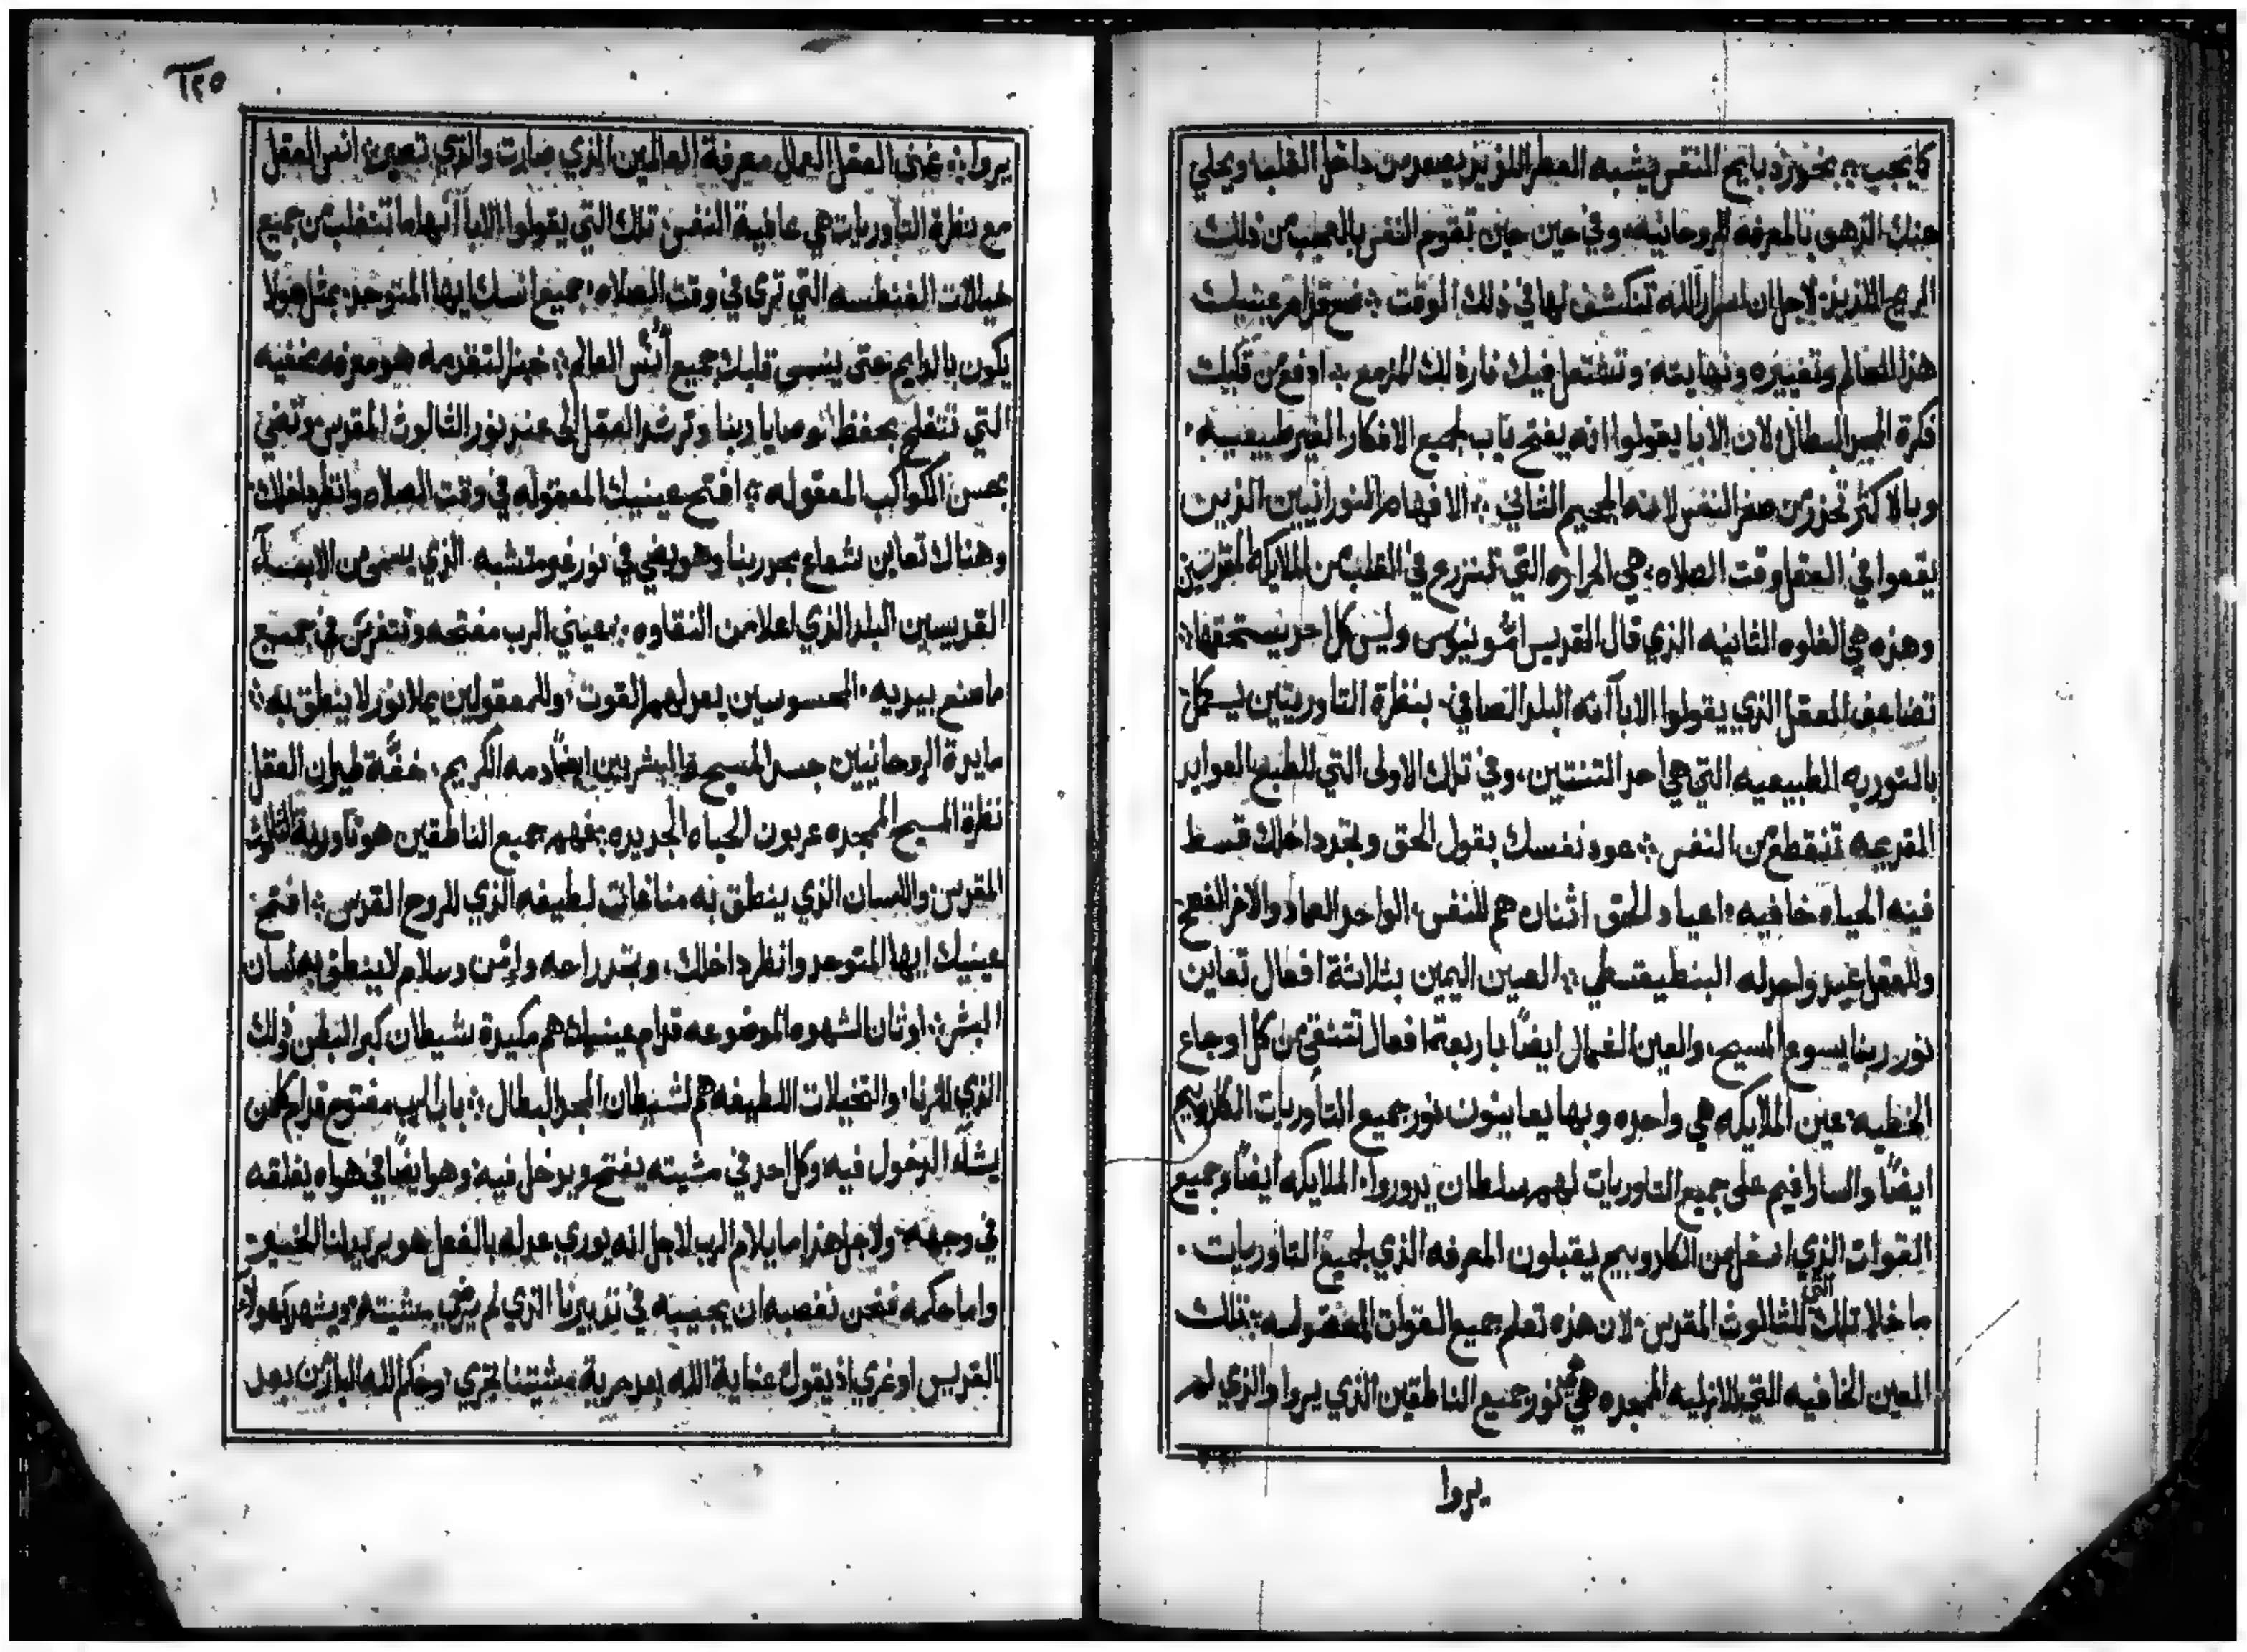 كما يجب ؞ بخور ذبايح النفس يشبه العطر اللذيذ يصعد من داخل القلب ويحلي
عندك الذهن بالمعرفه الروحانيه وفي حين حين تقوم النفس بالعجب من ذلك
الريح اللذيذ لاجل ان اسرار الله تنكشف لها في ذلك الوقت ؞ ضع قدام عينيك
هذا العالم وتغييره ونهايته وتشتعل فيك نار ذلك المزمع ادفع من قلبك
فكرة المجد البطال لان الابا يقولوا انه يفتح باب لجميع الافكار الغير طبيعيه
وبالاكثر تحزر من صغر النفس لانه الجحيم الثاني ؞ الافهام النورانيين الذين
يقعوا في العقل وقت الصلاه هي الحراره التي تنزرع في القلب من الملايكه المقدسين
وهذه هي الغلوه الثانيه الذي قال القديس امونيوس وليس كل احد يستحقها
تضاعف العقل الذي يقولوا الابا انه البلد الصافي بنظرة التاوريتين يسكل
بالتوريه الطبيعيه التي هي احد التنتين وفي تلك الاولى التي للطبع العوايد
القديمه تنقطع من النفس ؞ عود نفسك بقول الحق وتجد داخلك قسط
فيه الحياه خافيه اعياد الحق اثنان هم للنفس الواحد العماد والاخر الفصح
وللعقل عيد واحد له البنطيقسطي ؞ العين اليمين بثلاثة افعال تعاين
نور ربنا يسوع المسيح والعين الشمال ايضا باربعة افعال تتنقى من كل اوجاع
الخطيه عين الملايكه هي واحده وبها يعاينون نور جميع التاوريات الكاروبيم
ايضا والسارافيم على جميع التاوريات لهم سلطان يدوروا الملايكه ايضا وجميع
القوات الذي اسفل من الكاروبيم يقبلون المعرفه الذي لجميع التاوريات
ما خلا تلك التي للثالوث المقدس لان هذه تعلم جميع القوات المعقوله تلك
العين الخافيه التي للازليه الممجده هي نور جميع الناطقين الذي يروا والذي لم
يروا
١٢٥
يروا غنى العقل العمال معرفة العالمين الذي صارت والذي تصير انس العقل
مع نظرة التاوريات هي عافية النفس تلك التي يقولوا الابا انها ما تنغلب من جميع
خيالات الفنطسه التي ترى في وقت الصلاه جميع انسك ايها المتوحد بمثل هولا
يكون بالدايم حتى ينسى قلبك جميع أُنس العالم ؞ خبز التقدمه هو معرفه مخفيه
التي تتفلح بحفظ وصايا ربنا وترشد العقل الى عند نور الثالوث المقدس وتضي
بحسن الكواكب المعقوله ؞ افتح عينيك المعقوله في وقت الصلاه وانظر داخلك
وهناك تعاين شعاع مجد ربنا وهو يضي في نور غير متشبه الذي يسمى من الابهات
القديسين البلد الذي اعلا من النقاوه بعيني الرب مفتحه وتتفرس في جميع
ما صنع بيديه المحسوسين يعد لهم القوت وللمعقولين يملا نور لا ينطق به
مايدة الروحانيين جسد المسيح البشريين ايضا دمه الكريم خفّة طيران العقل
نظرة المسيح الممجده عربون الحياه الجديده فهم جميع الناطقين هو تاورية الثالوث
المقدس واللسان الذي ينطق به مناغات لطيفه الذي للروح القدس ؞ افتح
عينيك ايها المتوحد وانظر داخلك وتجد راحه وامن وسلام لا ينطق به لسان
البشر اوثان الشهوه الموضوعه قدام عينيك هم مكيدة شيطان كبر البطن ذلك
الذي للزنا والتخيلات اللطيفه هم لشيطان المجد البطال ؞ باب الرب مفتوح قدام كل من
يشا الدخول فيه وكل احد في مشيته يفتح ويدخل فيه وهو ايضا في هواه يغلقه
في وجهه ولاجل هذا ما يلام الرب لاجل انه يوري عدله بالفعل هو يريد لنا الخير
واما حكمه فنحن نغصبه ان يجيبه في تدبيرنا الذي لم يرضي مشيته ويشهد كهولاء
القديس اوغري اذ يقول عناية الله بعد حرية مشيتنا تجري وحكم الله البار من بعد